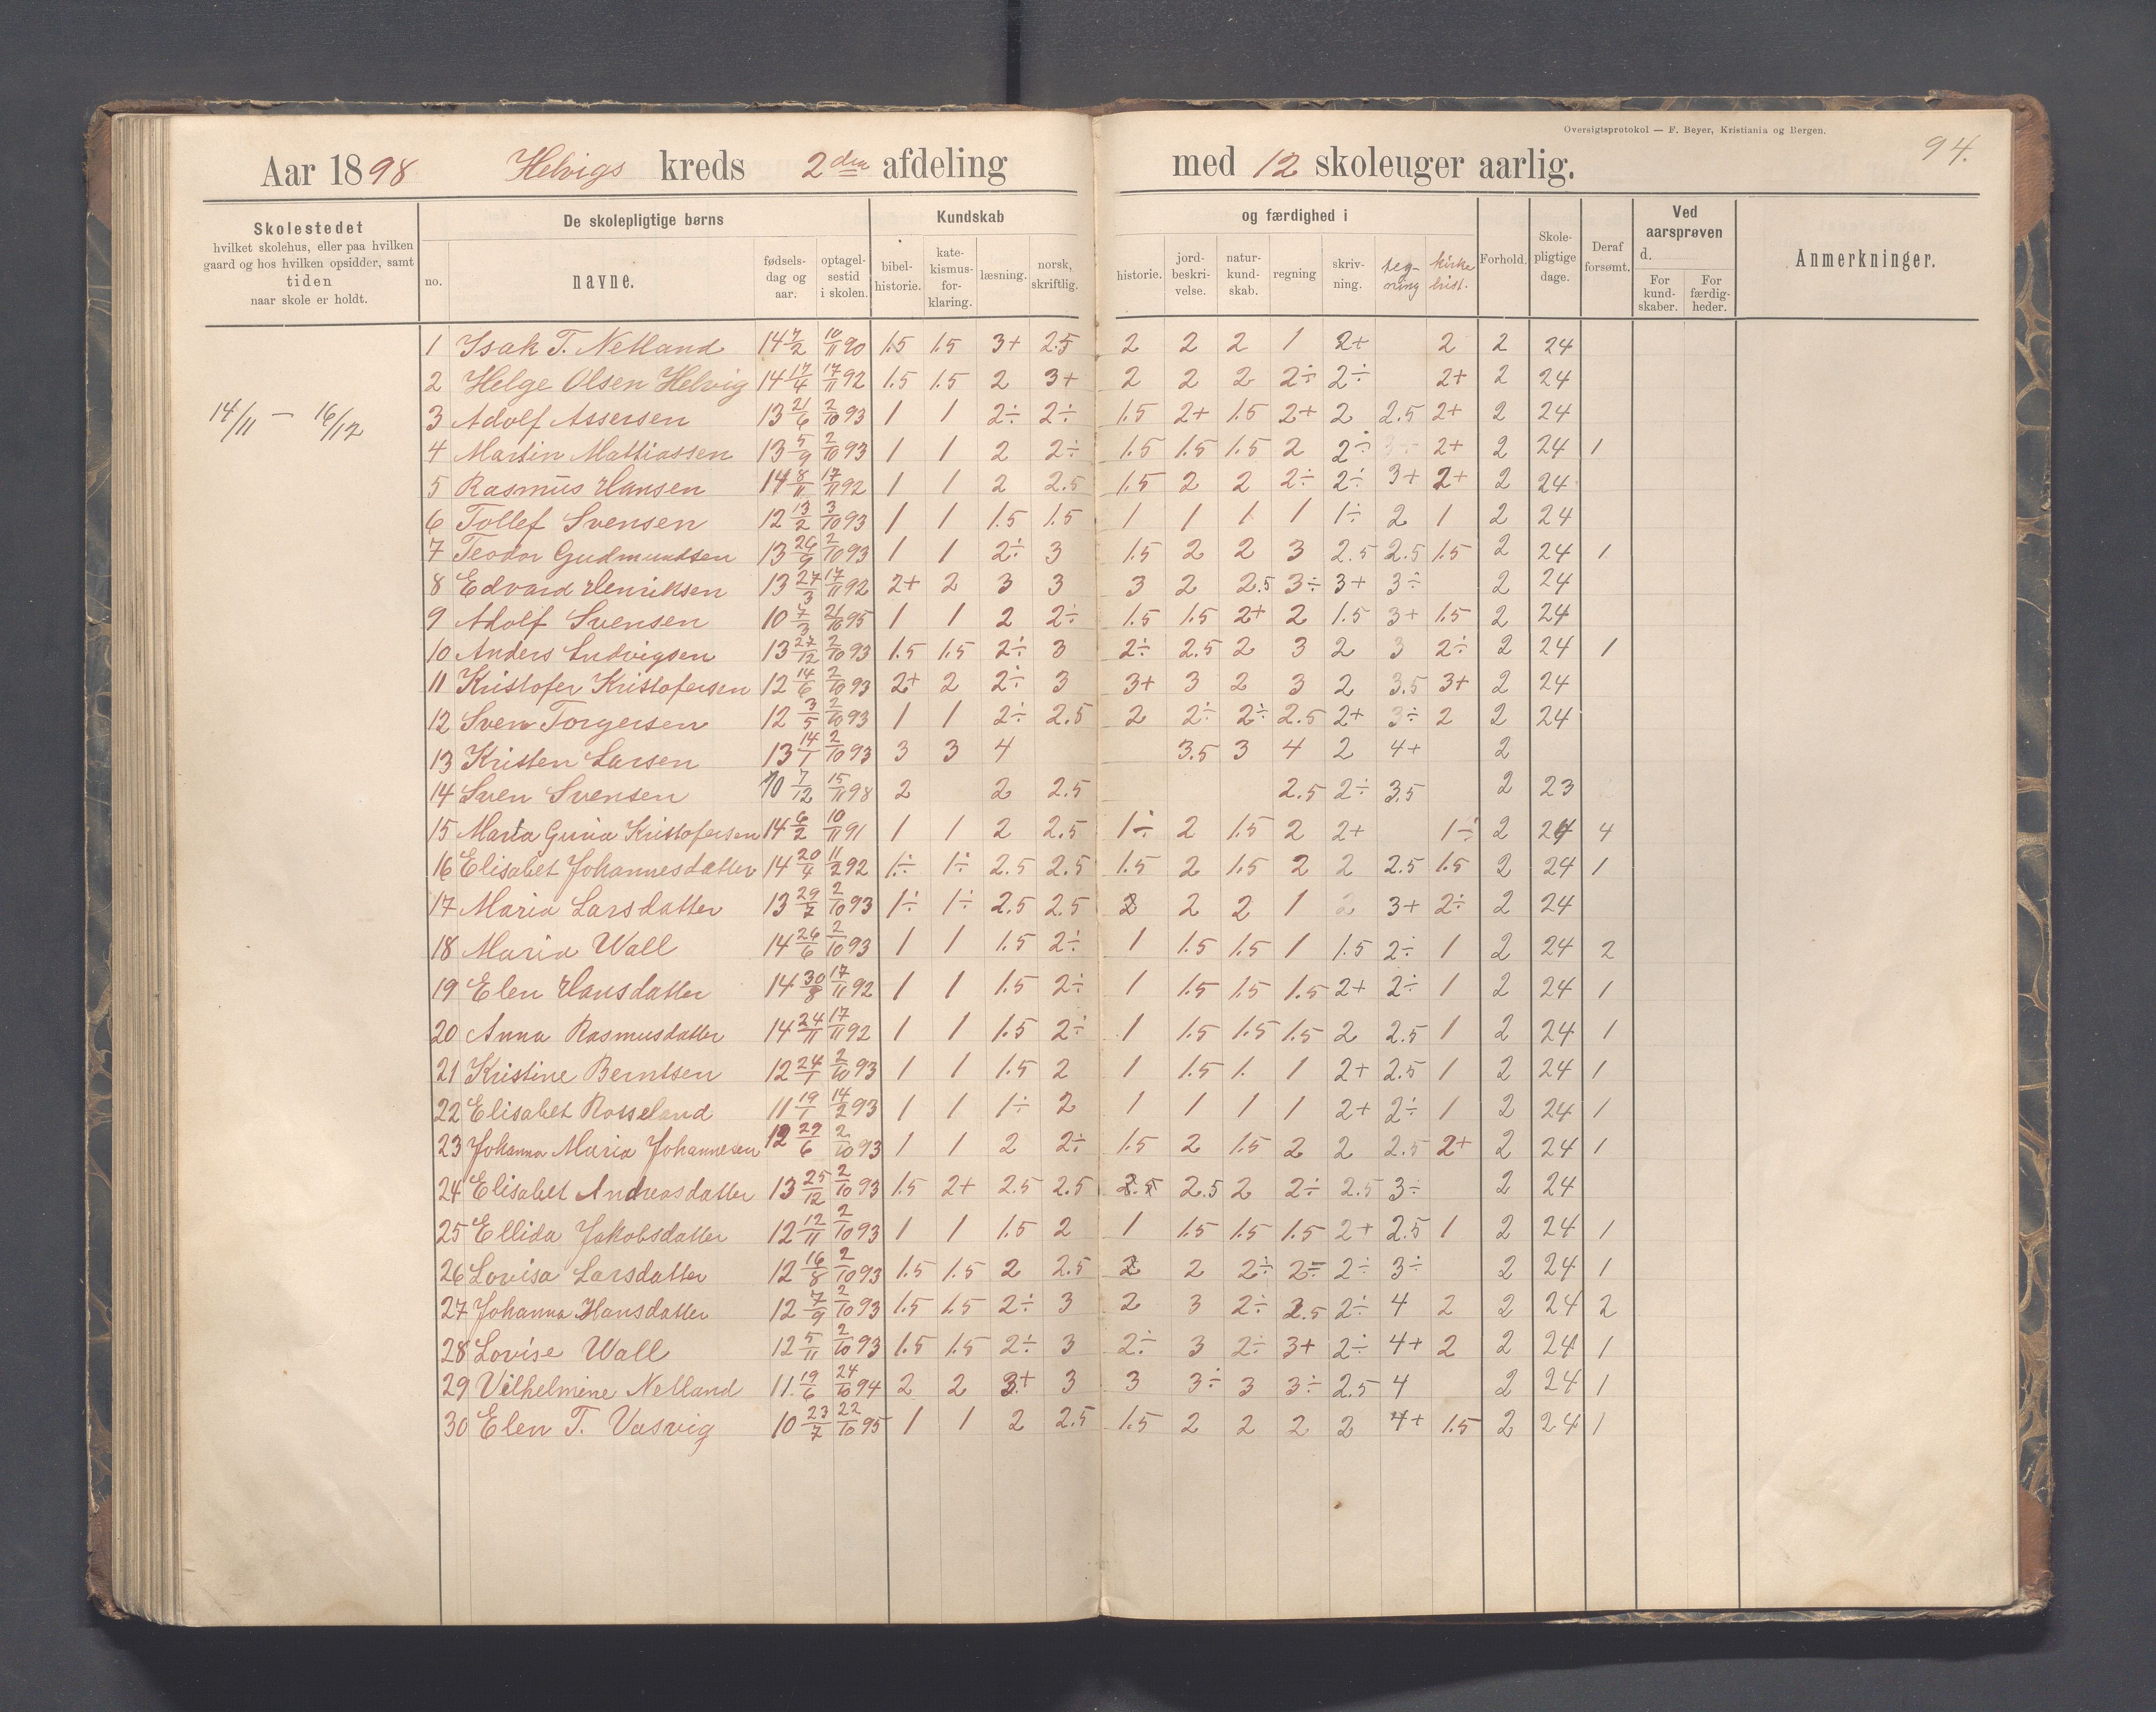 Oversigtsprotokol — F. Beyer, Kristiania og Bergen.
94.
Aar 1898 Helvigs kreds 2den afdeling med 12 skoleuger aarlig.
Skolestedet hvilket skolehus, eller paa hvilken gaard og hos hvilken opsidder, samt tiden naar skole er holdt.
De skolepligtige børns
no. navne. fødsels-dag og aar. optagel-sestid i skolen.
Kundskab og færdighed i
bibel-historie. kate-kismus-for-klaring. læsning. norsk, skriftlig. historie. jord-beskri-velse. natur-kund-skab. regning skriv-ning. teg-ning kirke hist.
Forhold. Skole-pligtige dage. Deraf forsømt.
Ved aarsprøven d.
For kund-skaber. For færdig-heder.
Anmerkninger.
14/11 — 16/12
1 Isak T. Netland 14 7/2 10/11 90 1.5 1.5 3+ 2.5 2 2 2 1 2+ 2 2 24
2 Helge Olsen Helvig 14 17/4 17/11 92 1.5 1.5 2 3+ 2 2 2 2÷ 2÷ 2+ 2 24
3 Adolf Assersen 13 21/6 2/10 93 1 1 2÷ 2÷ 1.5 2+ 1.5 2+ 2 2.5 2+ 2 24
4 Martin Mattiassen 13 5/9 2/10 93 1 1 2 2÷ 1.5 1.5 1.5 2 2÷ 3÷ 2+ 2 24 1
5 Rasmus Hansen 14 8/11 17/11 92 1 1 2 2.5 1.5 2 2 2÷ 2÷ 3+ 2+ 2 24
6 Tollef Svensen 12 13/2 3/10 93 1 1 1.5 1.5 1 1 1 1 1÷ 2 1 2 24
7 Teodor Gudmundsen 13 26/9 2/10 93 1 1 2÷ 3 1.5 2 2 3 2.5 2.5 1.5 2 24 1
8 Edvard Henriksen 13 27/3 17/11 92 2+ 2 3 3 3 2 2.5 3÷ 3+ 3÷ 2 24
9 Adolf Svensen 10 7/3 21/10 95 1 1 2 2÷ 1.5 1.5 2+ 2 1.5 3+ 1.5 2 24
10 Anders Ludvigsen 13 27/12 2/10 93 1.5 1.5 2÷ 3 2÷ 2.5 2 3 2 3 2÷ 2 24 1
11 Kristofer Kristofersen 12 14/6 2/10 93 2+ 2 2÷ 3 3+ 3 2 3 2 3.5 3+ 2 24
12 Sven Torgersen 12 3/5 2/10 93 1 1 2÷ 2.5 2 2÷ 2÷ 2.5 2+ 3÷ 2 2 24
13 Kristen Larsen 13 14/1 2/10 93 3 3 4 3.5 3 4 2 4+ 2
14 Sven Svensen 10 7/12 15/11 98 2 2 2.5 2.5 2÷ 3.5 2 23
15 Maria Guria Kristofersen 14 6/2 10/11 91 1 1 2 2.5 1÷ 2 1.5 2 2+ 1÷ 2 24 4
16 Elisabet Johannesdatter 14 20/4 11/2 92 1÷ 1÷ 2.5 2.5 1.5 2 1.5 2 2 2.5 1.5 2 24 1
17 Maria Larsdatter 13 29/7 2/10 93 1÷ 1÷ 2.5 2.5 2 2 2 1 2 3+ 2÷ 2 24
18 Maria Wall 14 26/6 2/10 93 1 1 1.5 2÷ 1 1.5 1.5 1 1.5 2÷ 1 2 24 2
19 Elen Hansdatter 14 30/8 17/11 92 1 1 1.5 2÷ 1 1.5 1.5 1.5 2+ 2÷ 1 2 24 1
20 Anna Rasmusdatter 14 24/11 17/11 92 1 1 1.5 2÷ 1 1.5 1.5 1.5 2 2.5 1 2 24 1
21 Kristine Berntsen 12 24/1 2/10 93 1 1 1.5 2 1 1.5 1. 1 2+ 2.5 1 2 24 1
22 Elisabet Rosseland 11 19/1 14/2 93 1 1 1÷ 2 1 1 1 1 2+ 2÷ 1 2 24 1
23 Johanna Maria Johannesen 12 29/6 2/10 93 1 1 2 2÷ 1.5 2 1.5 2 2 2.5 2+ 2 24 1
24 Elisabet Andreasdatter 13 25/12 2/10 93 1.5 2+ 2.5 2.5 2.5 2.5 2 2÷ 2.5 3÷ 2 24
25 Ellida Jakobsdatter 12 12/11 2/10 93 1 1 1.5 2 1 1.5 1.5 1.5 2+ 2.5 1 2 24 1
26 Lovisa Larsdatter 12 16/8 2/10 93 1.5 1.5 2 2.5 2 2 2÷ 2÷ 2÷ 3÷ 2 24 1
27 Johanna Hansdatter 12 7/9 2/10 93 1.5 1.5 2÷ 3 2 3 2÷ 2.5 2÷ 4 2 2 24 2
28 Lovise Wall 12 5/11 2/10 93 1.5 1.5 2÷ 3 2÷ 3 2÷ 3+ 2÷ 4+ 2 2 24 1
29 Vilhelmine Netland 11. 19/6 24/10 94 2 2 3+ 3 3 3÷ 3 3÷ 2.5 4 2 24 1
30 Elen T. Vasvig 10 23/7 22/10 95 1 1 2 2.5 1.5 2 2 2 2 4+ 1.5 2 24 1